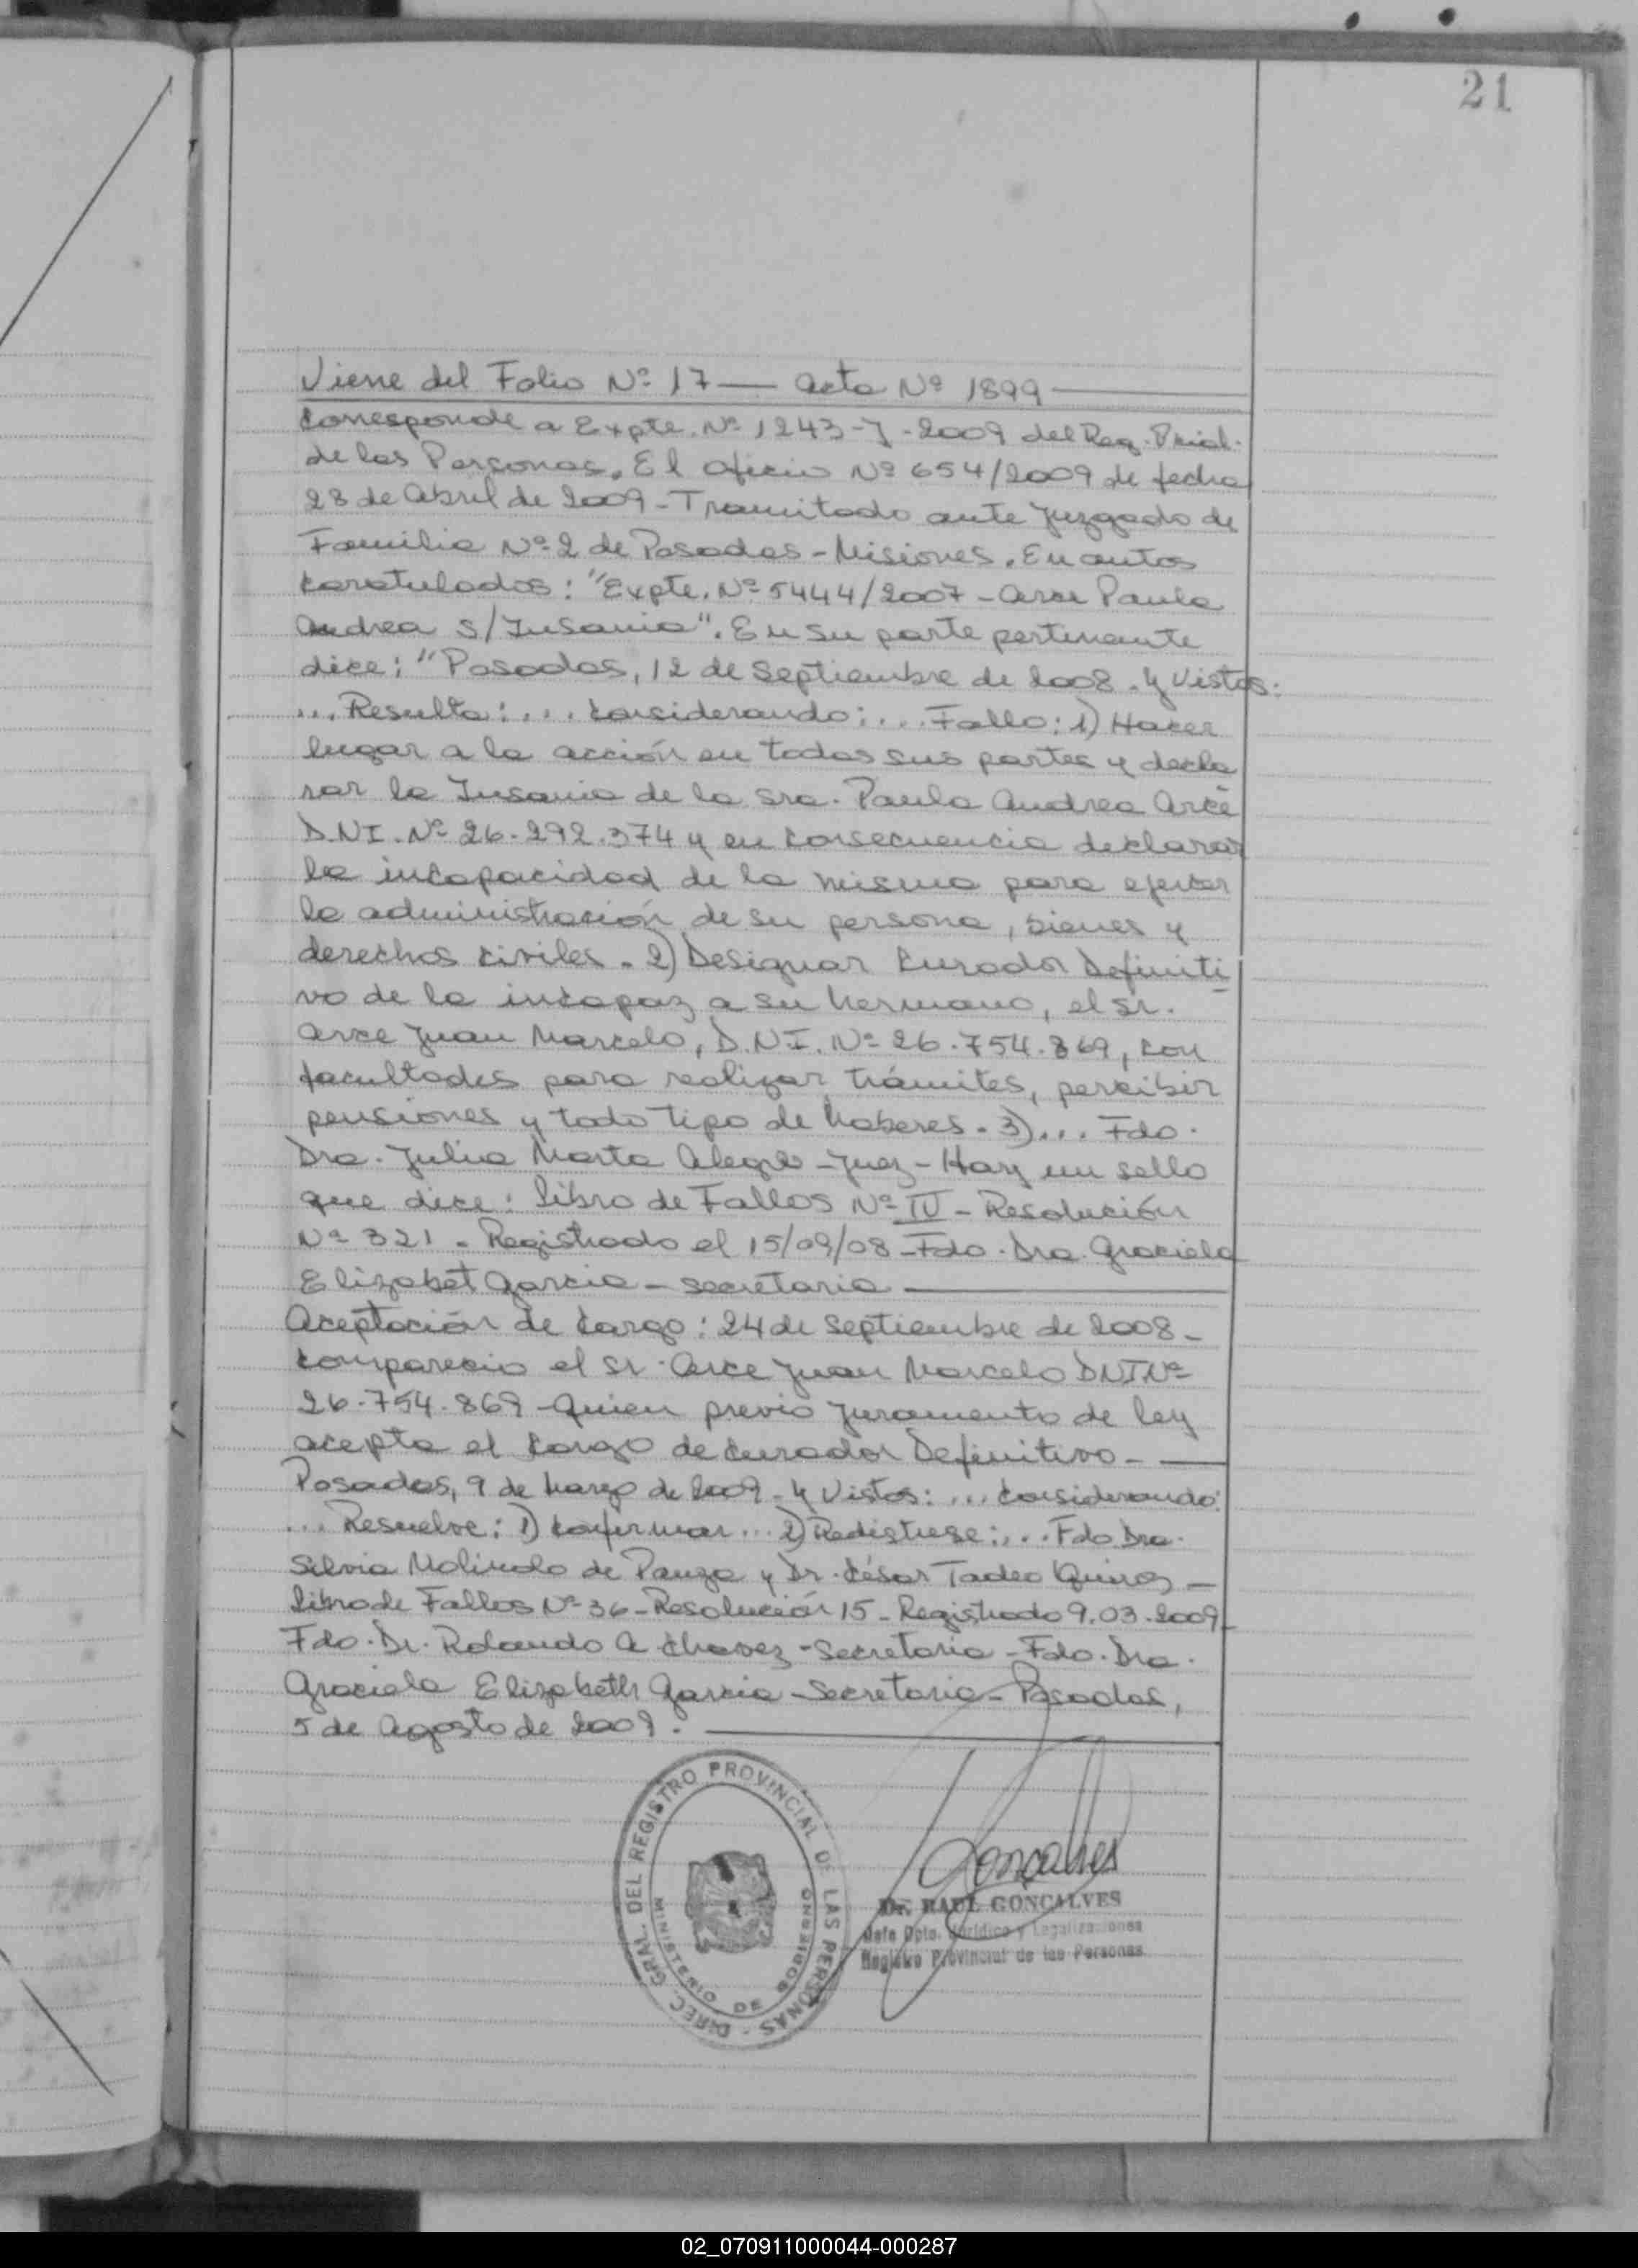 21
Viene del Folio Nº 17 — Acta Nº 1899 —
Corresponde a Expte. Nº 1243-J-2009 del Reg. Pcial.
de las Personas. El Oficio Nº 654/2009 de fecha
28 de Abril de 2009 - Tramitado ante Juzgado de
Familia Nº 2 de Posadas - Misiones. En autos
caratulados: "Expte. Nº 5444/2007 - Arce Paula
Andrea S/Insania". En su parte pertinente
dice: "Posadas, 12 de Septiembre de 2008. Y Vistos:
... Resulta: ... Considerando: ... Fallo: 1) Hacer
lugar a la acción en todas sus partes y decla
rar la Insania de la Sra. Paula Andrea Arce
D.N.I. Nº 26.292.374 y en consecuencia declarar
la incapacidad de la misma para ejercer
la administración de su persona, bienes y
derechos civiles. 2) Designar Curador Definiti
vo de la incapaz a su hermano, el Sr.
Arce Juan Marcelo, D.N.I. Nº 26.754.869, con
facultades para realizar trámites, percibir
pensiones y todo tipo de haberes. 3)... Fdo.
Dra. Julia Marta Alegre - Juez - Hay un sello
que dice: Libro de Fallos Nº IV - Resolución
Nº 321 - Registrado el 15/09/08 - Fdo. Dra. Graciela
Elizabet Garcia - Secretaria —
Aceptación de Cargo: 24 de Septiembre de 2008 -
Comparecio el Sr. Arce Juan Marcelo DNI Nº
26.754.869 - Quien previo juramento de ley
acepta el Cargo de Curador Definitivo - —
Posadas, 9 de Marzo de 2009 - Y Vistos: ... Considerando:
... Resuelve: 1) Confirmar... 2) Redistrese: ... Fdo. Dra.
Silvia de Panza y Dr. César Tadeo Quiroz -
Libro de Fallos Nº 36 - Resolución 15 - Registrado 9.03.2009 -
Fdo. Dr. Rolando A Chavez - Secretario - Fdo. Dra.
Graciela Elizabeth Garcia - Secretaria - Posadas,
5 de Agosto de 2009. —
DIREC. GRAL. DEL REGISTRO PROVINCIAL DE LAS PERSONAS -
MINISTERIO DE GOBIERNO
Goncalves
Dr. RAUL GONCALVES
Jefe Dpto. Jurídico y Legalizaciones
Registro Provincial de las Personas
02_070911000044-000287